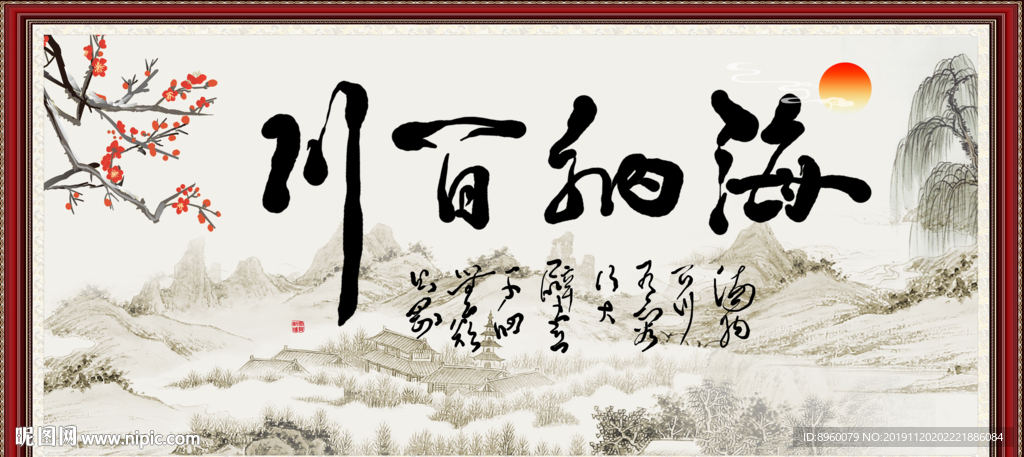 海纳百川
海纳
百川
有容
乃大
壁立
千仞
無欲
则刚
昵图网 www.nipic.com
ID:8960079 NO:20191120202221886084